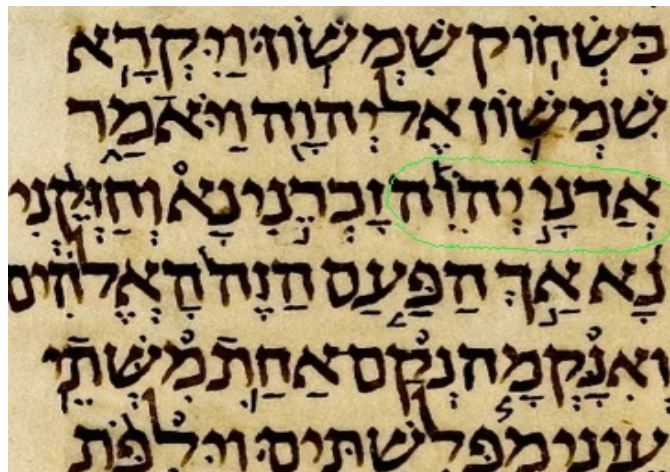 בִּשְׂחוֹק שִׁמְשׁוֹן׃ וַיִּקְרָא
שִׁמְשׁוֹן אֶל־יְהוָה וַיֹּאמַר
אֲדֹנָי יְהֹוִה זָכְרֵנִי נָא וְחַזְּקֵנִי
נָא אַךְ הַפַּעַם הַזֶּה הָאֱלֹהִים
וְאִנָּקְמָה נְקַם אַחַת מִשְּׁתֵי
עֵינַי מִפְּלִשְׁתִּים׃ וַיִּלְפֹּת